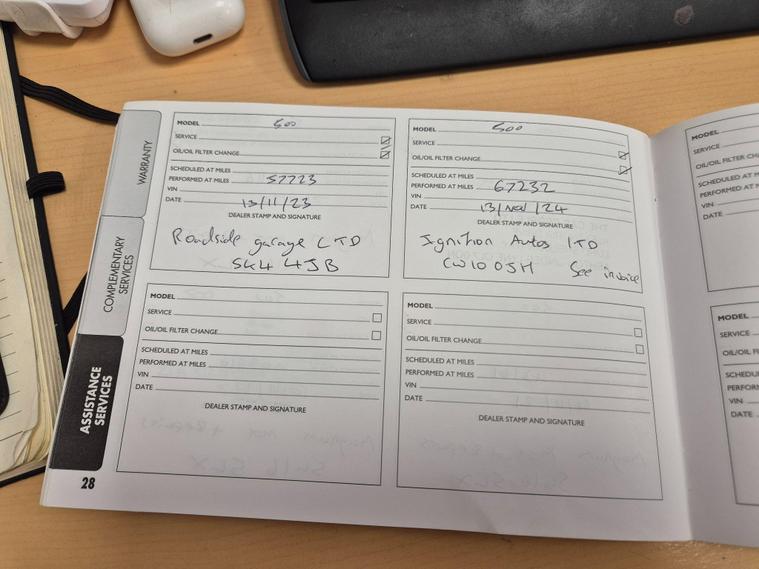 WARRANTY
COMPLEMENTARY
SERVICES
ASSISTANCE
SERVICES
28
MODEL 500
SERVICE
OIL/OIL FILTER CHANGE
SCHEDULED AT MILES
PERFORMED AT MILES 57723
VIN
DATE 13/11/23
DEALER STAMP AND SIGNATURE
Roadside garage LTD
SK4 4JB
MODEL 500
SERVICE
OIL/OIL FILTER CHANGE
SCHEDULED AT MILES
PERFORMED AT MILES 67232
VIN
DATE 13/Nov/24
DEALER STAMP AND SIGNATURE
Ignition Autos LTD
CW10 0JH See invoice
MODEL
SERVICE
OIL/OIL FILTER CHANGE
SCHEDULED AT MILES
PERFORMED AT MILES
VIN
DATE
DEALER STAMP AND SIGNATURE
MODEL
SERVICE
OIL/OIL FILTER CHANGE
SCHEDULED AT MILES
PERFORMED AT MILES
VIN
DATE
DEALER STAMP AND SIGNATURE
MODEL
SERVICE
OIL/OIL FILTER
SCHEDULED AT M
PERFORMED AT
VIN
DATE
MODEL
SERVICE
OIL/OIL FI
VIN
DATE